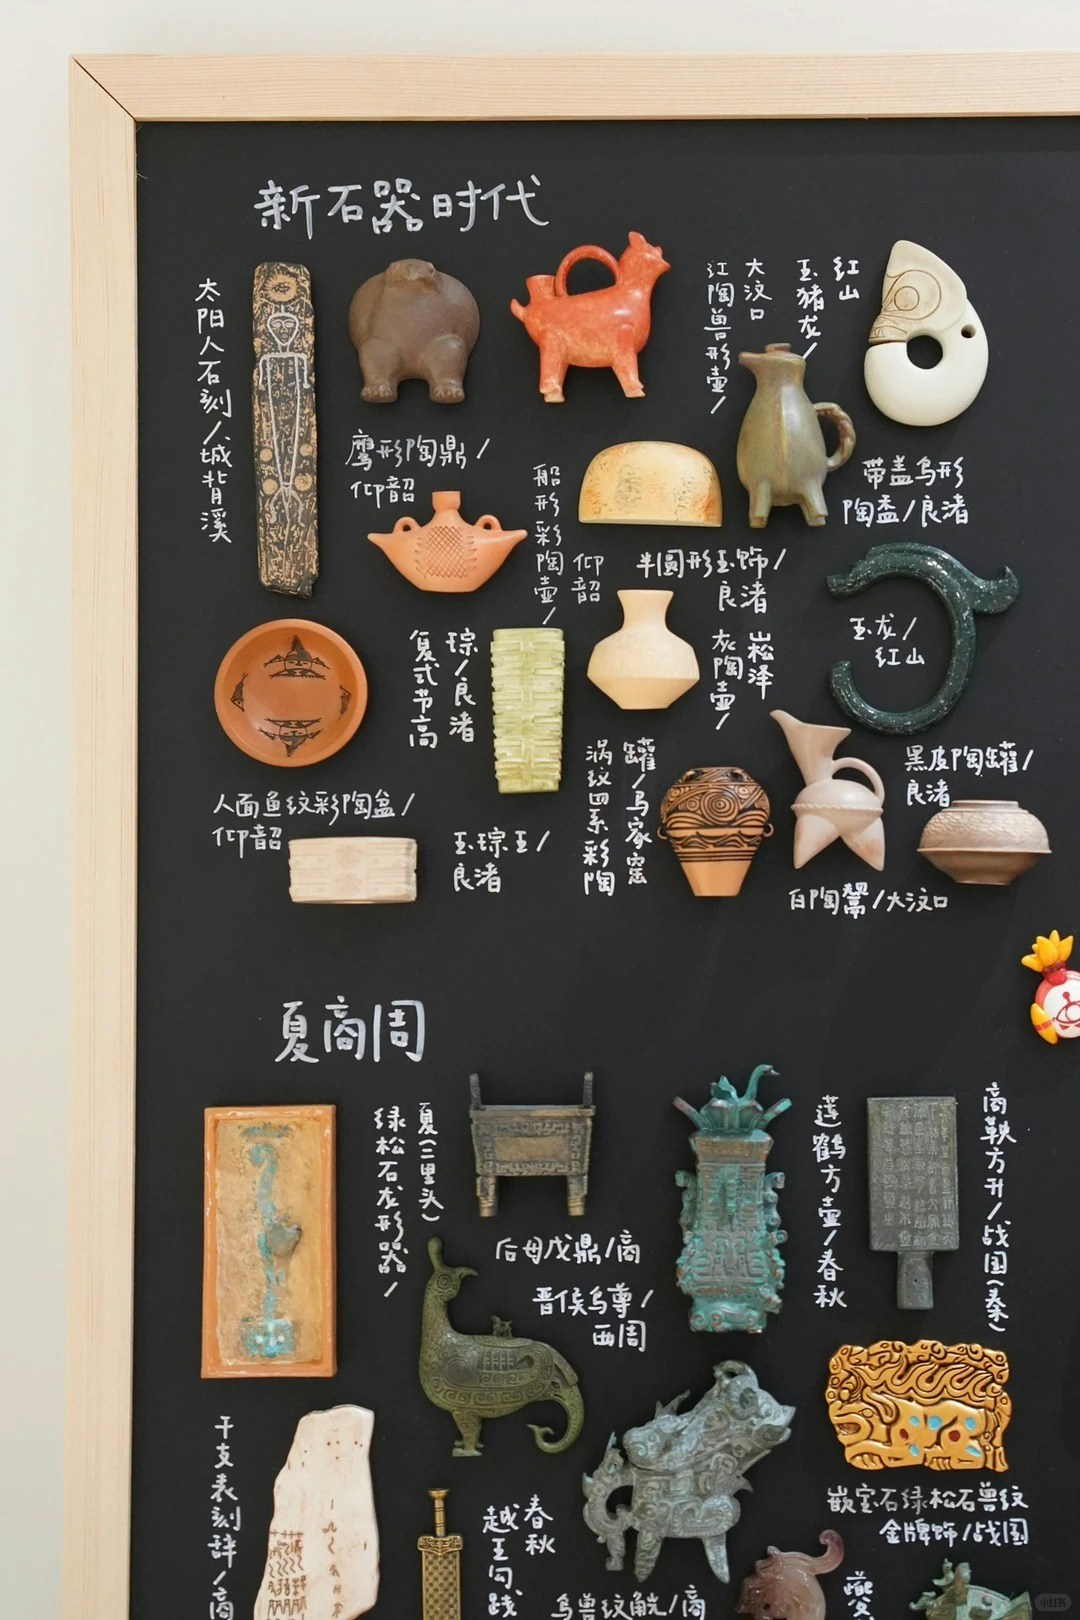 新石器时代
太阳人石刻/城背溪
鹰形陶鼎/
仰韶
船形彩陶壶/
仰韶
大汶口
红陶兽形壶/
红山
玉猪龙/
带盖鸟形
陶盉/良渚
半圆形玉饰/
良渚
玉龙/
红山
复式节高
琮/良渚
崧泽
灰陶壶/
人面鱼纹彩陶盆/
仰韶
玉琮王/
良渚
涡纹四系彩陶
罐/马家窑
黑皮陶罐/
良渚
白陶鬶/大汶口
夏商周
夏(二里头)
绿松石龙形器/
后母戊鼎/商
莲鹤方壶/春秋
商鞅方升/战国(秦)
晋侯鸟尊/
西周
嵌宝石绿松石兽纹
金牌饰/战国
干支表刻辞/商
春秋
越王勾践
鸟兽纹觥/商
小红书